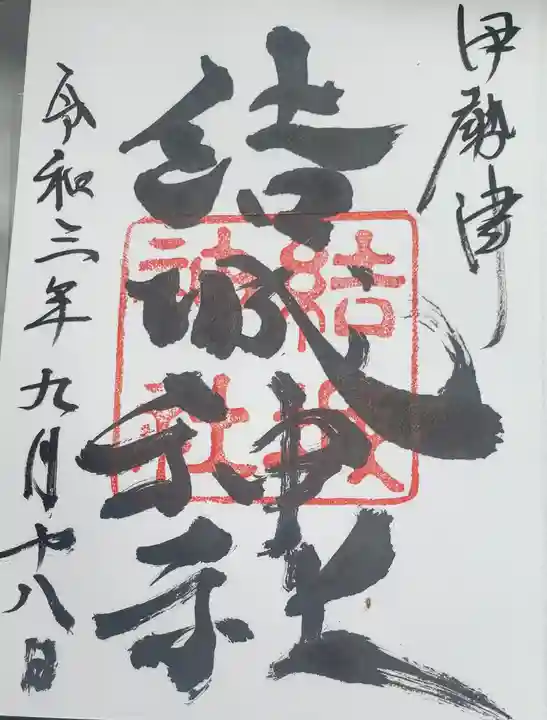 伊勢津
結城神社
結城神社
令和三年九月十八日